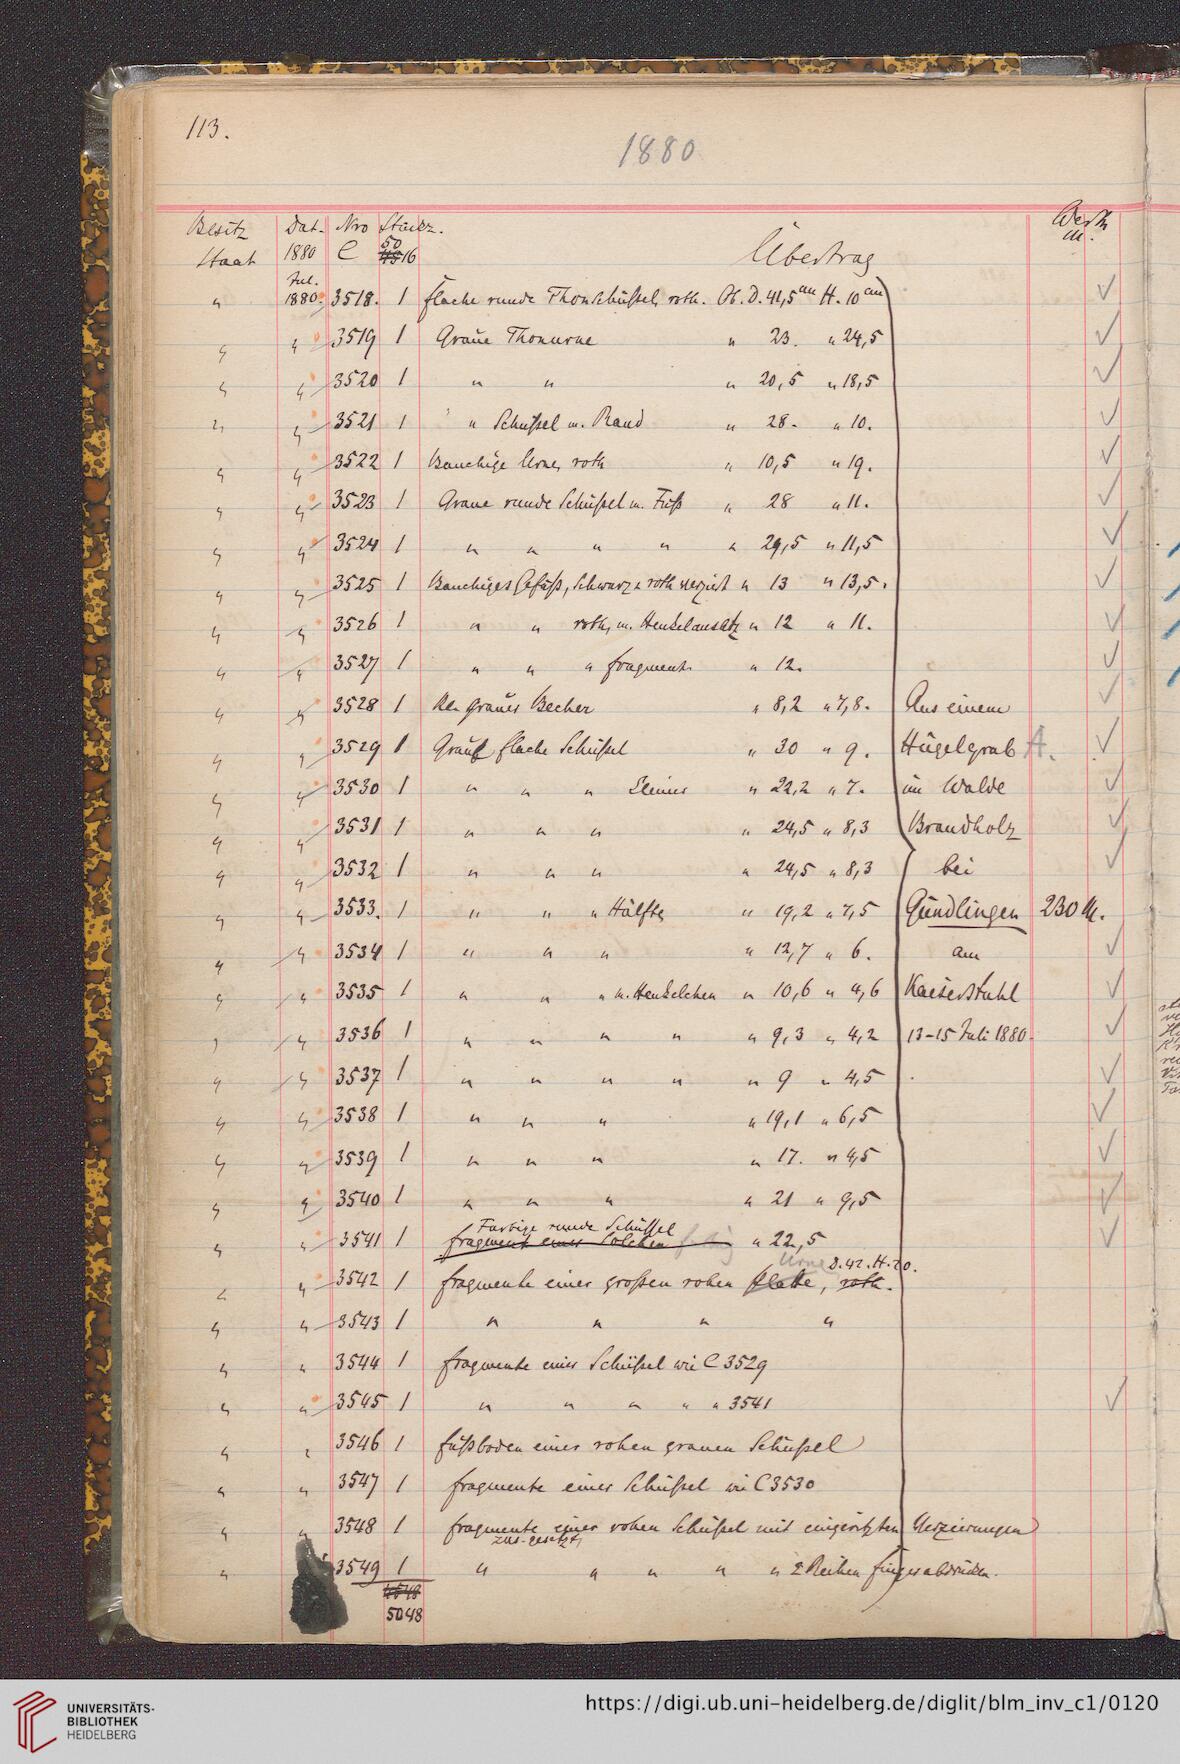 113.
1880
Besitz Dat. Nro Stückz. Werth
M.
Staat 1880 C 50 4516 Übertrag
" Jul. 1880. 3518. 1 flache runde Thonschüßel, roth. Ob. D. 41,5 cm H. 10 cm
" " 3519 1 Graue Thonurne " 23. " 24,5
" " 3520 1 " " " 20,5 " 18,5
" " 3521 1 " Schüßel m. Rand " 28. " 10.
" " 3522 1 Bauchige Urne, roth " 10,5 " 19.
" " 3523 1 Graue runde Schüßel m. Fuß " 28 " 11.
" " 3524 1 " " " " " 29,5 " 11,5
" " 3525 1 Bauchiges Gefäß, schwarz u roth verziert " 13 " 13,5.
" " 3526 1 " " roth, m. Henkelansatz " 12 " 11.
" " 3527 1 " " " fragment. " 12.
" " 3528 1 Kl. graues Becher " 8,2 " 7,8. Aus einem
" " 3529 1 Graue flache Schüßel " 30 " 9. Hügelgrab A.
" " 3530 1 " " " kleiner " 22,2 " 7. im Walde
" " 3531 1 " " " " 24,5 " 8,3 Brandholz
" " 3532 1 " " " " 24,5 " 8,3 bei
" " 3533. 1 " " " Hälfte " 19,2 " 7,5 Gündlingen 230 M.
" " 3534 1 " " " " 12,7 " 6. am
" " 3535 1 " " " m. Henkelchen " 10,6 " 4,6 Kaiserstuhl
" " 3536 1 " " " " " 9,3 " 4,2 13-15 Juli 1880.
" " 3537 1 " " " " " 9 " 4,5
" " 3538 1 " " " " 19,1 " 6,5
" " 3539 1 " " " " 17. " 4,5
" " 3540 1 " " " " 21 " 9,5
Farbige runde Schüssel
" " 3541 1 fragment einer solchen " 22,5
Urne D. 42. H. 20.
" " 3542 1 fragmente einer großen rohen platte, roth.
" " 3543 1 " " " "
" " 3544 1 fragmente einer Schüßel wie C 3529
" " 3545 1 " " " " " 3541
" " 3546 1 fußboden einer rohen grauen Schüßel
" " 3547 1 fragmente einer Schüßel wie C 3530
" " 3548 1 fragmente einer rohen Schüßel mit eingeritzten Verzierungen
zus. gesetzt,
" 3549 1 " " " " " 2 Reihen fingerabdrücken.
4548
5048
UNIVERSITÄTS-
BIBLIOTHEK
HEIDELBERG
https://digi.ub.uni-heidelberg.de/diglit/blm_inv_c1/0120